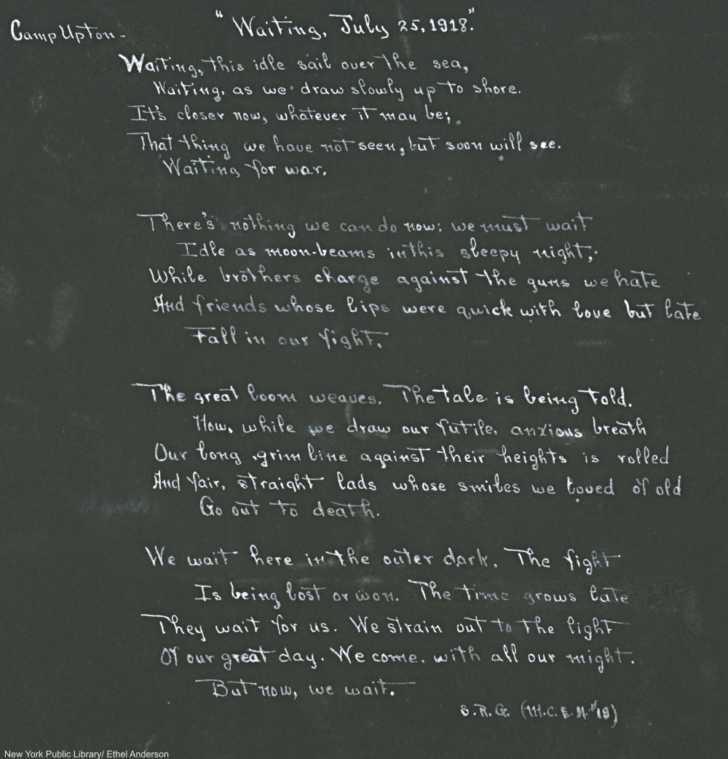 Camp Upton - "Waiting, July 25, 1918."
Waiting, this idle sail over the sea,
Waiting, as we draw slowly up to shore.
It's closer now, whatever it may be;
That thing we have not seen, but soon will see.
Waiting for war.
There's nothing we can do now: we must wait
Idle as moon-beams in this sleepy night;
While brothers charge against the guns we hate
And friends whose lips were quick with love but late
Fall in our fight.
The great loom weaves. The tale is being told.
Now, while we draw our futile, anxious breath
Our long, grim line against their heights is rolled
And fair, straight lads whose smiles we loved of old
Go out to death.
We wait here in the outer dark. The fight
Is being lost or won. The time grows late
They wait for us. We strain out to the light
Of our great day. We come, with all our might.
But now, we wait.
S.R.G. (M.C.E.H. '18)
New York Public Library/ Ethel Anderson